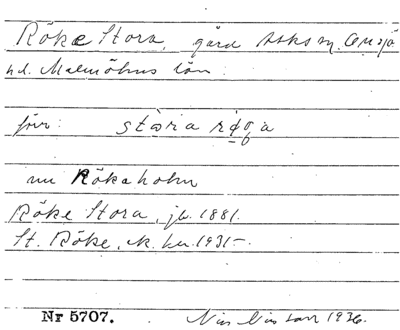 Röke Stora, gård Asks sn. Onsjö
hd. Malmöhus län.
förr: stora röga
nu Rökeholm
Röke Stora, jb. 1881.
St. Röke, 1931-
Nr 5707. Nils Nilsson 1936.